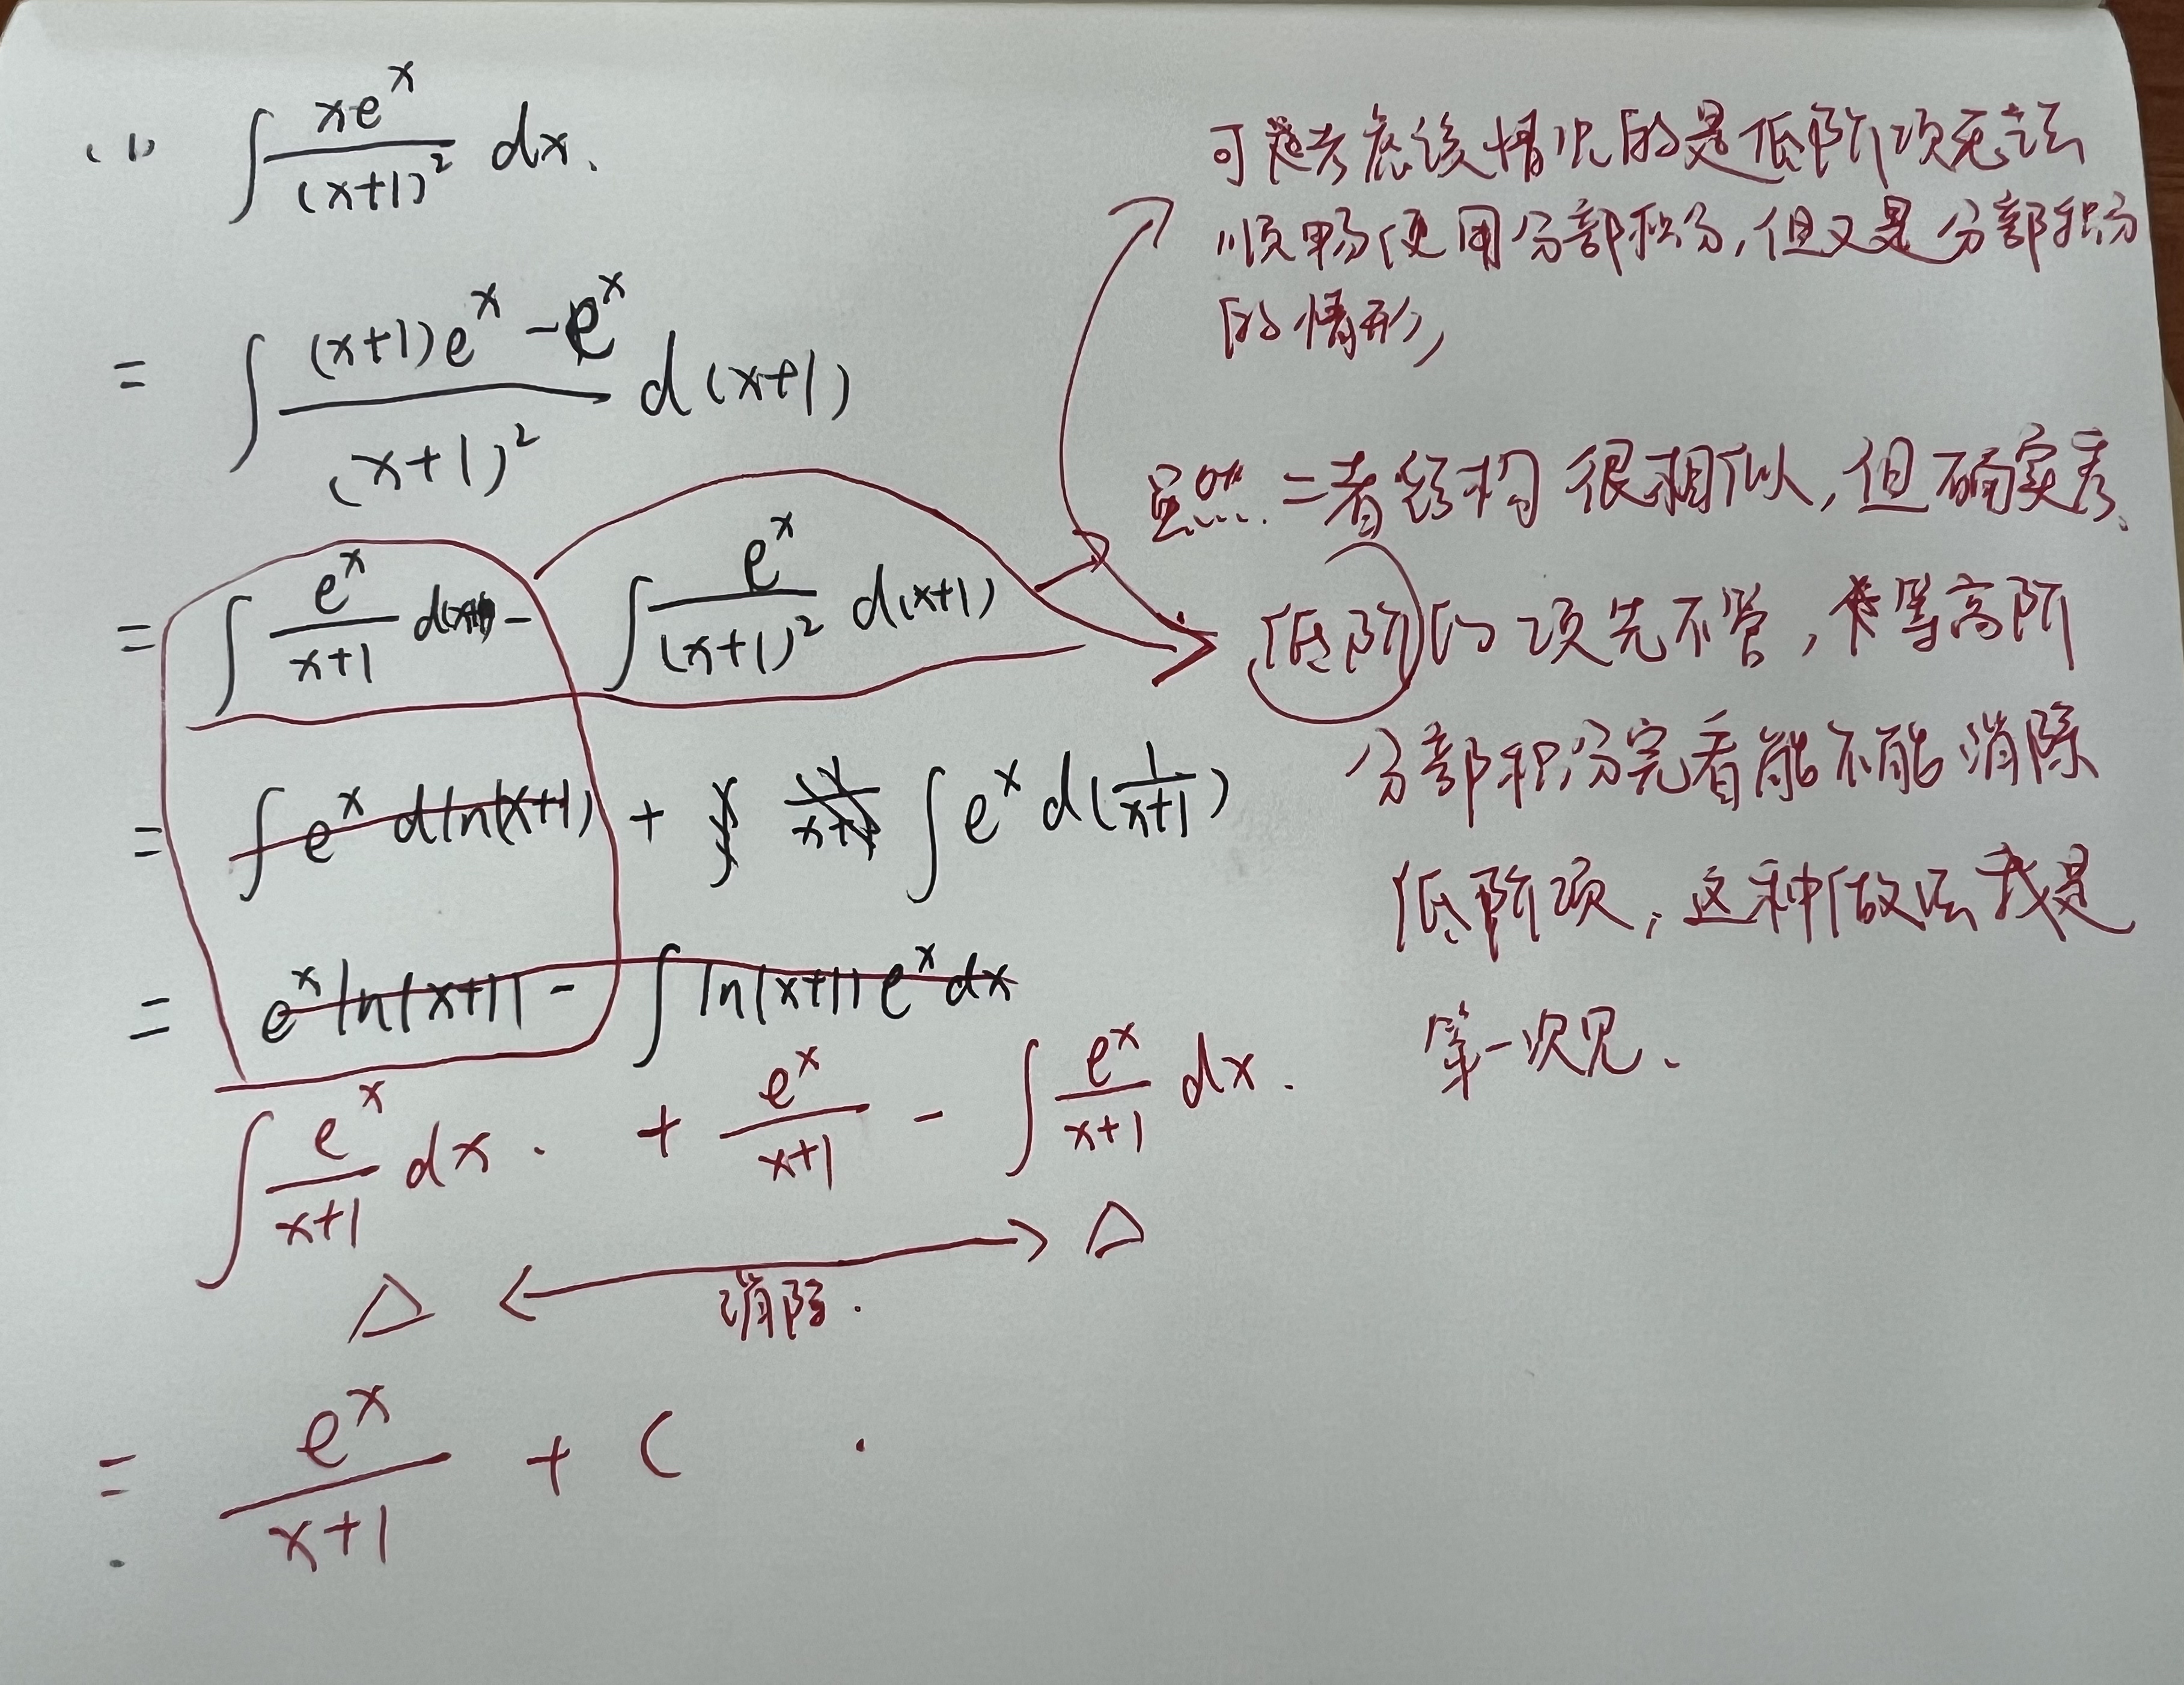 (1) ∫ xe^x/(x+1)^2 dx.
= ∫ ((x+1)e^x - e^x)/(x+1)^2 d(x+1)
= ∫ e^x/(x+1) d(x+1) - ∫ e^x/(x+1)^2 d(x+1)
= ∫ e^x d ln(x+1) + ∫ e^x d(1/(x+1))
= e^x ln(x+1) - ∫ ln(x+1) e^x dx
∫ e^x/(x+1) dx. + e^x/(x+1) - ∫ e^x/(x+1) dx.
△ ←→ △
消除.
= e^x/(x+1) + C.
可 考虑该情况的是低阶项无法
顺畅使用分部积分,但又是分部积分
的情形,
虽然二者结构很相似,但确实
低阶的项先不管, 等高阶
分部积分完看能不能消除
低阶项,这种做法我是
第一次见、